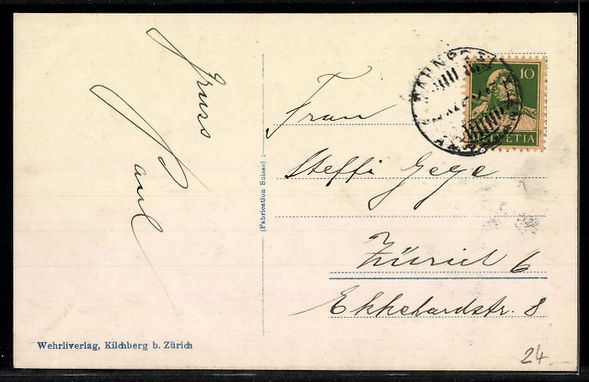 Gruss
Paul
Frau
Steffi Gege
Zürich 6
Ekkehardstr. 8
(Fabrication Suisse)
Wehrliverlag, Kilchberg b. Zürich
10
HELVETIA
BAHNPOST
24.-